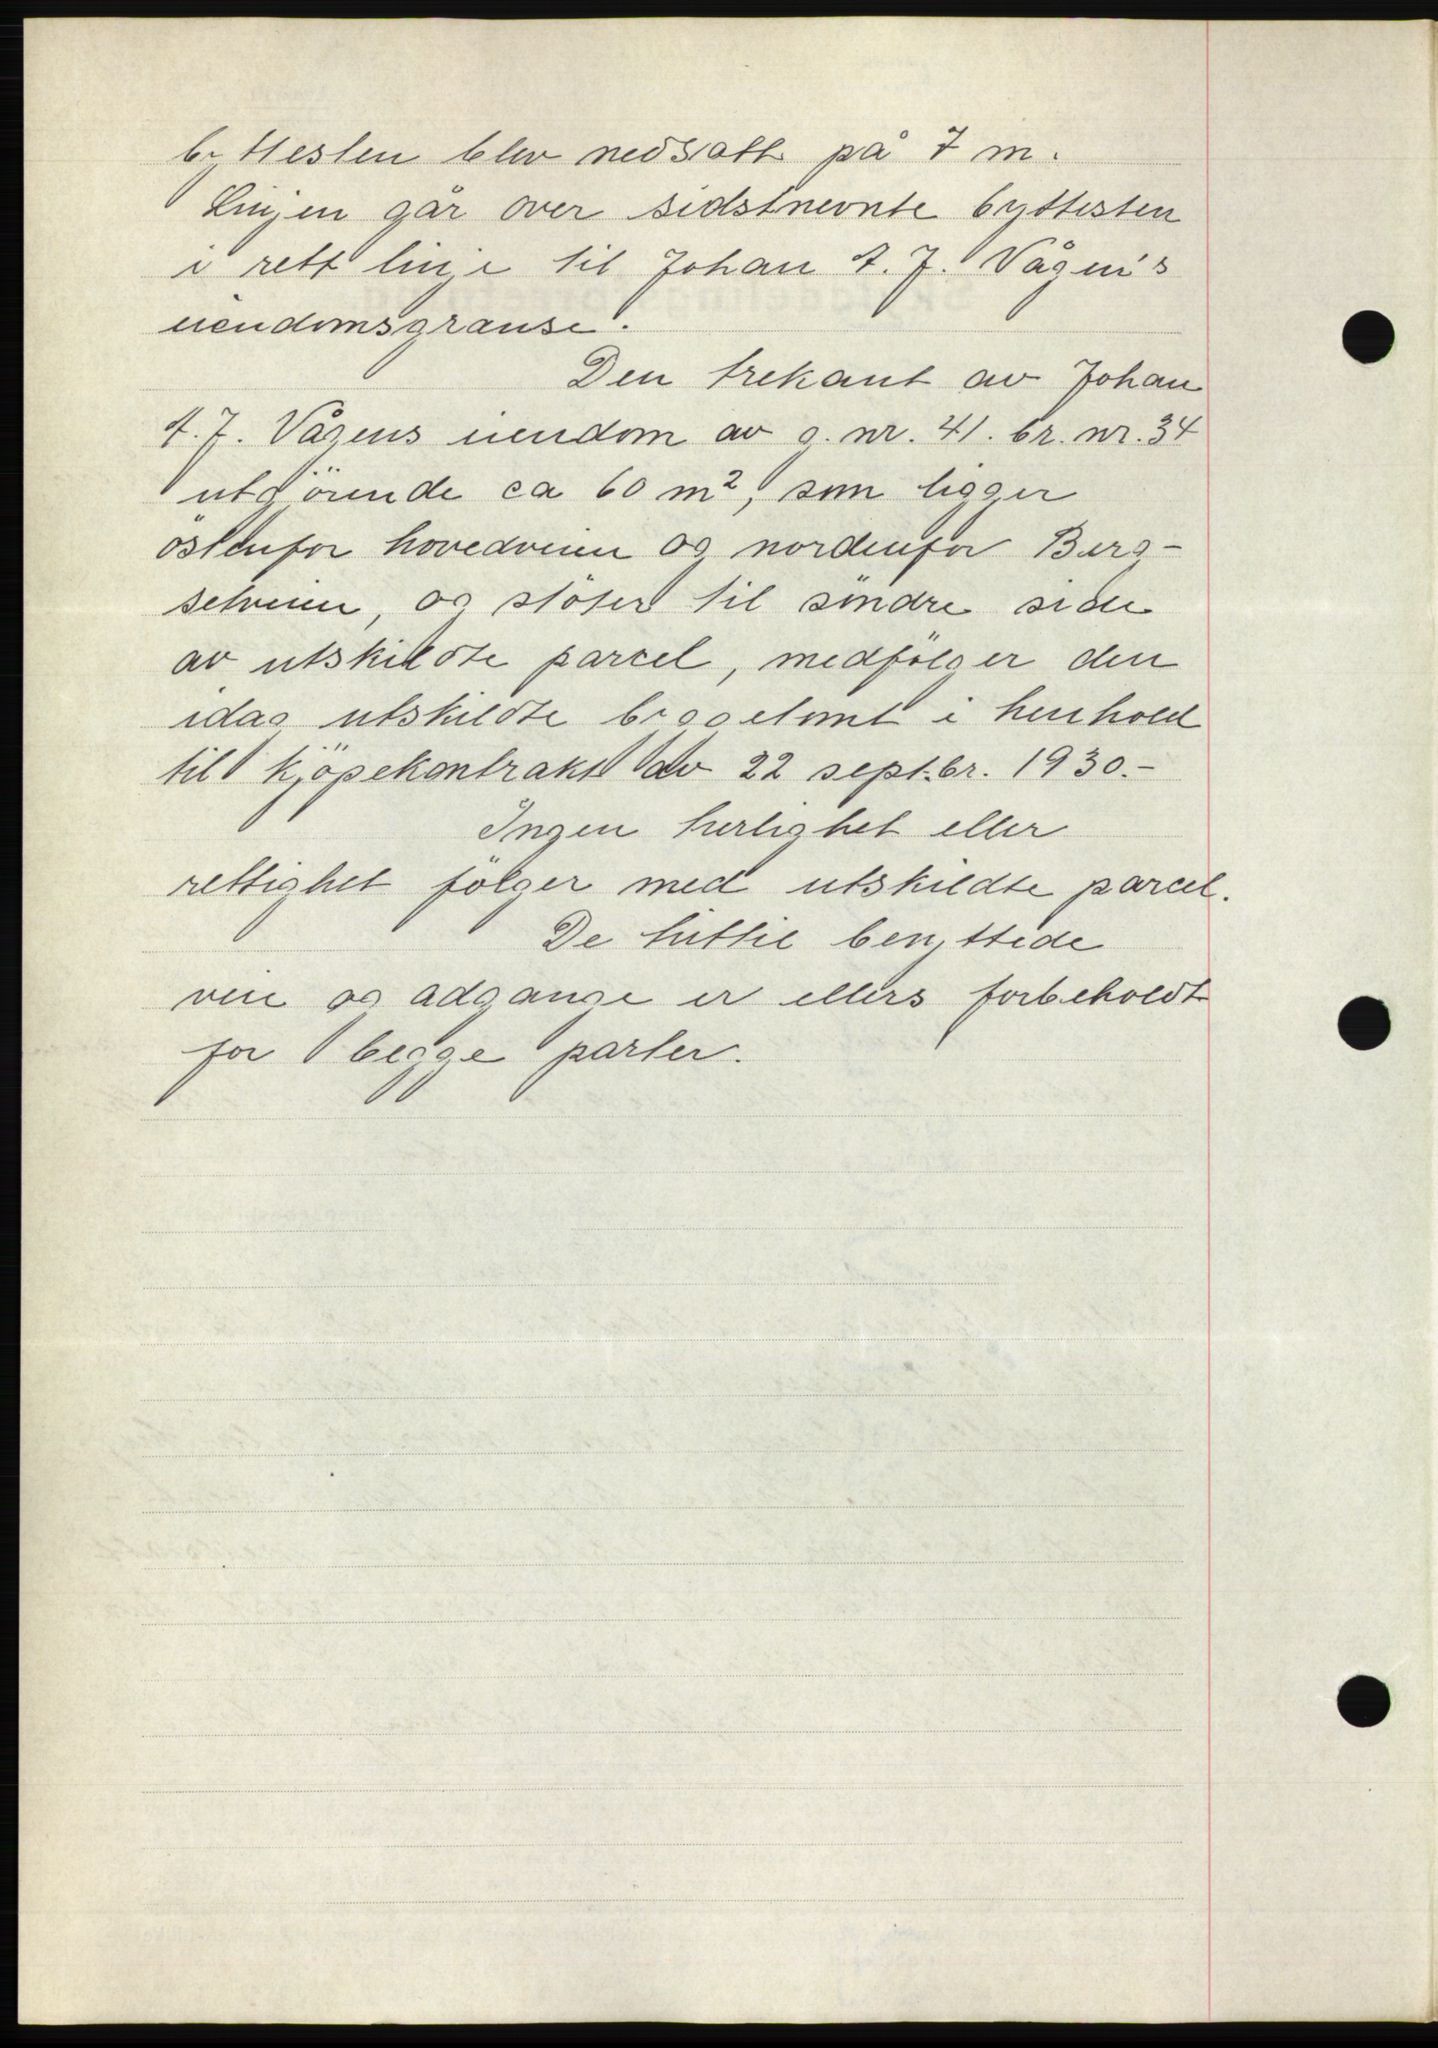 byttesten blev nedsatt på 7 m.
Linjen går over sidstnevnte byttesten
i rett linje til Johan A. J. Vågen's
eiendomsgranse.
Den trekant av Johan
A. J. Vågens eiendom av g. nr. 41. br. nr. 34
utgjörende ca 60 m², som ligger
östenfor hovedveien og nordenfor Berg-
setveien, og stöter til söndre side
av utskildte parcel, medfölger den
idag utskildte byggetomt i henhold
til kjöpekontrakt av 22 sept.br. 1930.-
Ingen herlighet eller
rettighet fölger med utskildte parcel.
De hittil benyttede
veie og adgange er ellers forbeholdt
for begge parter.